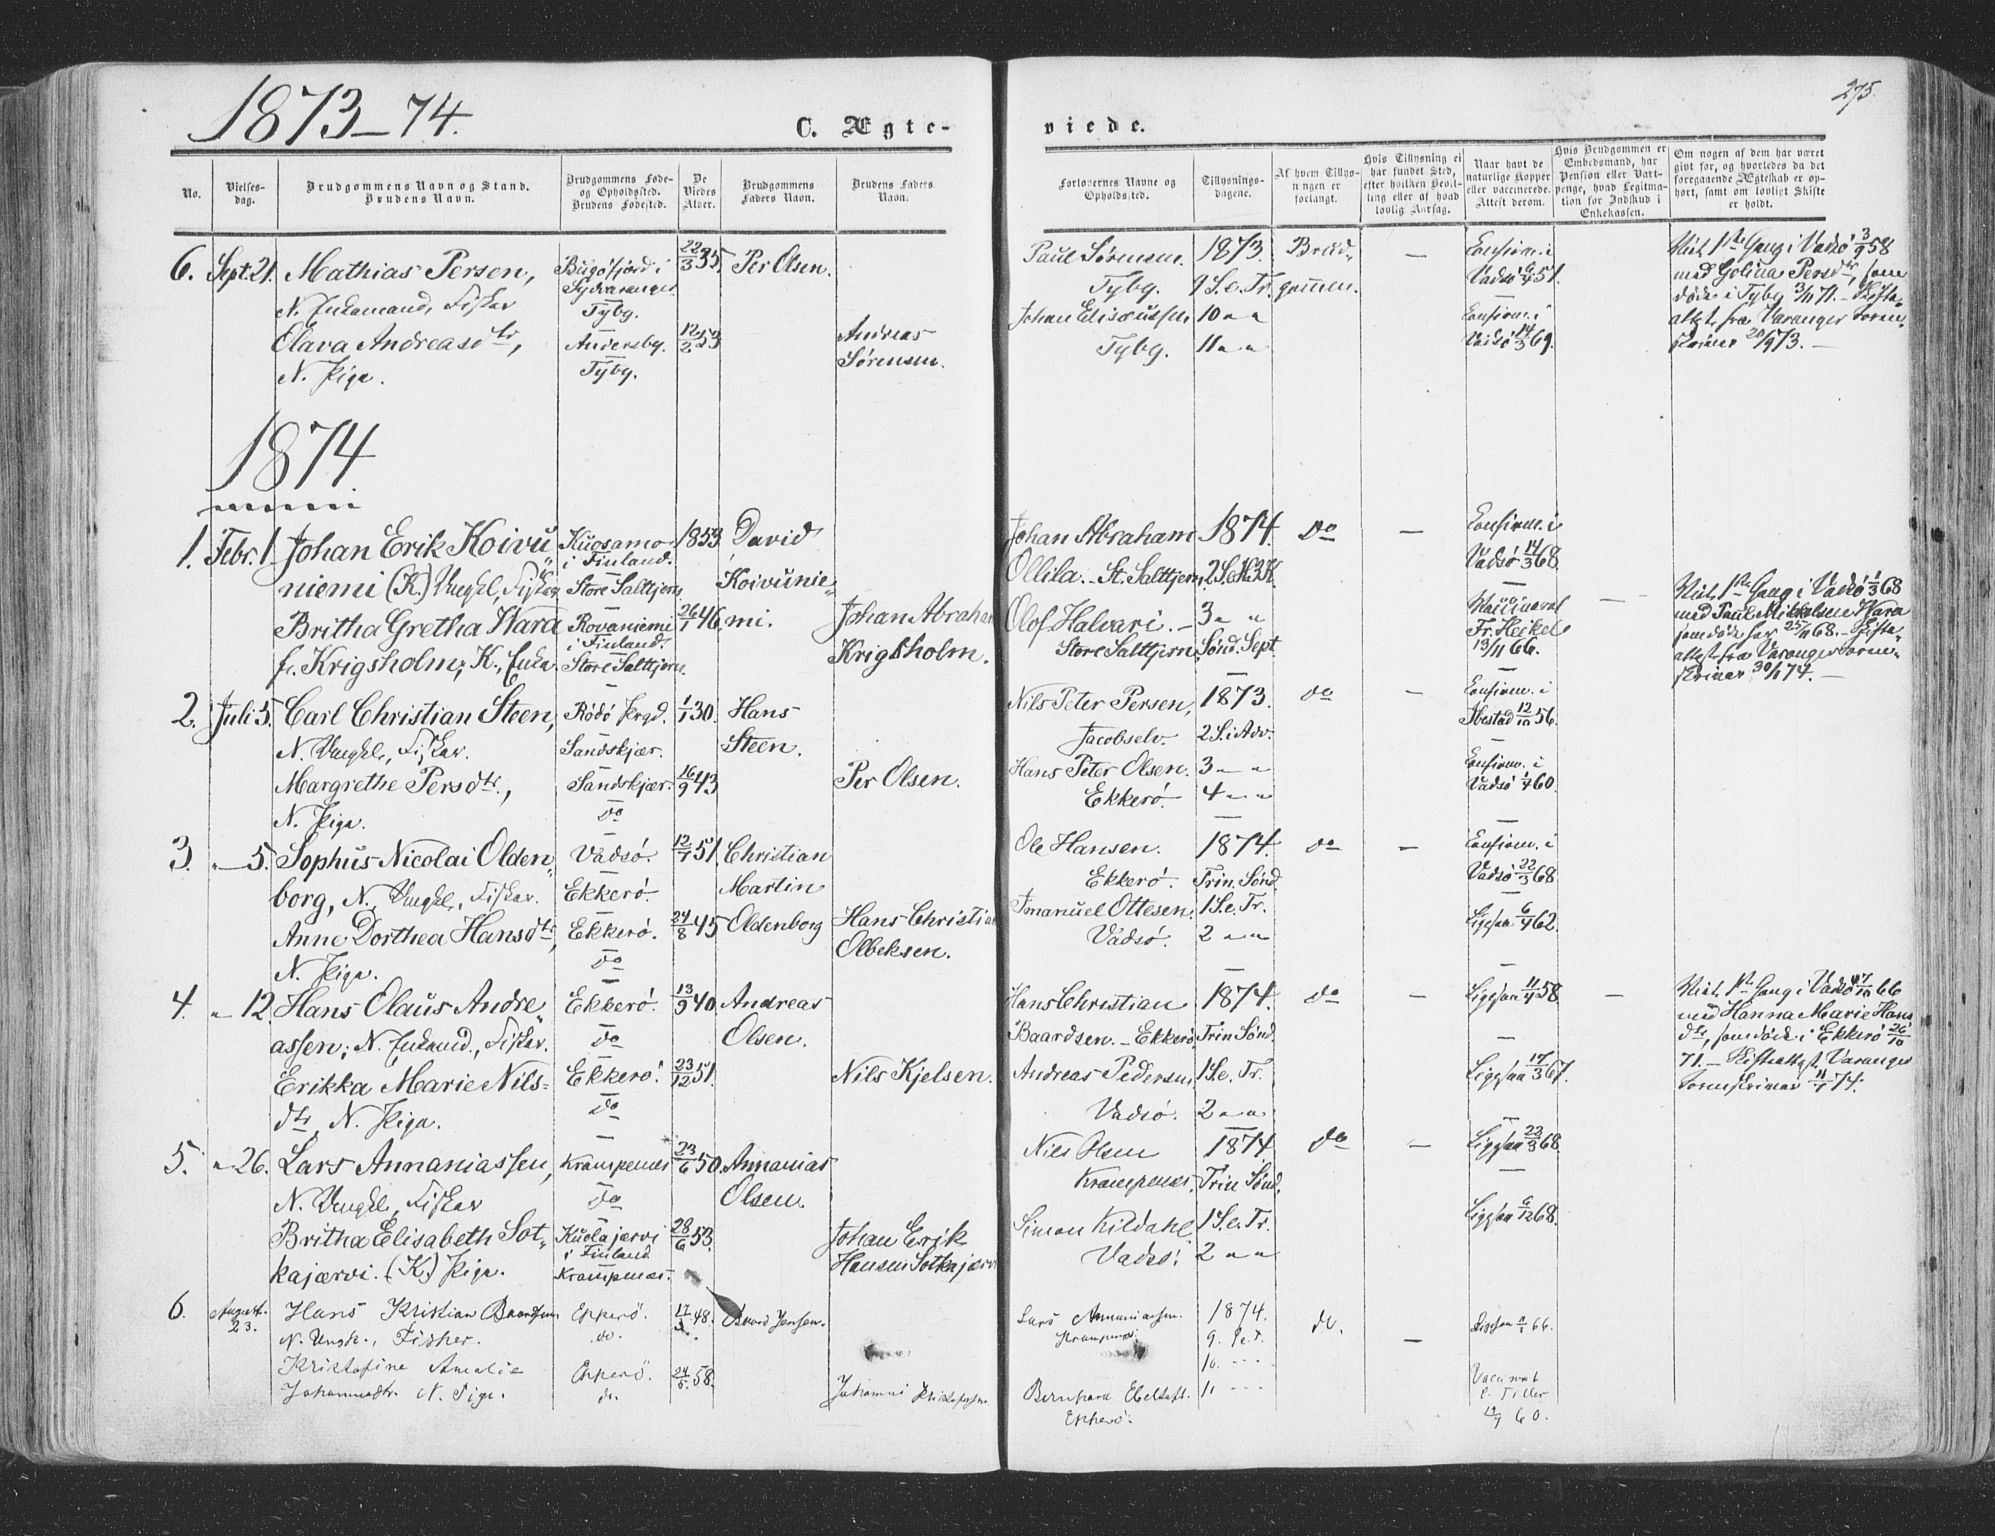 1873–74.
C. Ægte-
viede.
275.
No.
Vielses-
dag.
Brudgommens Navn og Stand.
Brudens Navn.
Brudgommens Føde-
og Opholdssted.
Brudens Fødested.
De
Viedes
Alder.
Brudgommens
Faders Navn.
Brudens Faders
Navn.
Forlovernes Navne og
Opholdssted.
Tillysnings-
dagene.
Af hvem Tillys-
ningen er
forlangt.
Hvis Tillysning ei
har fundet Sted,
efter hvilken Bevil-
ling eller af hvad
lovlig Aarsag.
Naar havt de
naturlige Kopper
eller vaccinerede.
Attest derom.
Hvis Brudgommen er
Embedsmand, har
Pension eller Vart-
penge, hvad Legitima-
tion for Indskud i
Enkekassen.
Om nogen af dem har været
gift før, og hvorledes da det
foregaaende Ægteskab er op-
hørt, samt om lovligt Skifte
er holdt.
6. Sept. 21. Mathias Persen, Bugøfjord i 22/3 35. Per Olsen.
Sydvaranger
N. Enkemand, Fisker Tybg.
Olava Andreasdtr, Andersby. 12/2 53 Andreas
N. Pige. Tybg. Sørensen.
Paul Sørensen. 1873. Brud-
Tybg. 9 S. e. Tr. gommen. —
Johan Elisæussen 10 " "
Tybg. 11 " "
Confirm. i
Vadsø 6/4 51.
Confirm. i
Vadsø 14/3 69.
Viet 1ste Gang i Vadsø 3/9 58
med Golina Persdtr, som
døde i Tybg 3/11 71. – Skifte-
attest fra Varanger Soren-
skriver 20/9 73. —
1874
1. Febr. 1 Johan Erik Koivu- Kuosamo 1853 David
i Finland.
niemi (K.) Ungkl, Fisker Store Saltjern Koivunie-
Britha Gretha Wara Rovaniemi 26/1 46. mi. Johan Abraham
i Finland.
f. Krigsholm; K., Enke Store Saltjern Krigsholm.
Johan Abraham 1874. do —
Ollila. – St. Salttjern
Olof Halvari. – 3 " "
Store Salttjern Sønd. Sept
Confirm. i
Vadsø 14/3 68.
Vaccineret
Fr. Heikel
13/11 66.
Viet 1ste Gang i Vadsø 1/3 68
med Paul Mikkelsen Wara
som døde her 25/11 68. – Skifte-
attest fra Varanger Soren-
skriver 30/1 74. —
2. Juli 5. Carl Christian Steen, Rödö Prgd. 1/1 30. Hans
N. Ungkl., Fisker. Sandskjær. Steen.
Margrethe Persdtr., Sandskjær. 16/9 43 Per Olsen.
N. Pige. do
Nils Peter Persen, 1873. do —
Jacobselv. 2 S. i Adv.
Hans Peter Olsen. 3 " "
Ekkerö. 4 " "
Confirm. i
Ibestad 12/10 56.
Confirm. i
Vadsø 1/7 60.
3. " 5. Sophus Nicolai Olden- Vadsö. 12/7 51. Christian
borg, N. Ungkl., Fisker. Ekkerö. Martin
Anne Dorthea Hansdtr, Ekkerö. 24/8 45 Oldenborg Hans Christian
N. Pige. do Olbeksen.
Ole Hansen. 1874. do —
Ekkerö. Trin. Sønd.
Imanuel Ottesen. 1 S. e. Tr.
Vadsø. 2 " "
Confirm. i
Vadsø 22/3 68
Ligesaa 6/4 62.
4. " 12. Hans Olaus Andre- Ekkerö. 13/9 40 Andreas
assen; N. Enkemd., Fisker. do Olsen.
Erikka Marie Nils- Ekkerö. 23/12 51. Nils Kjelsen.
dtr, N. Pige. do
Hans Christian 1874. do — —
Baardsen. – Ekkerö. Trin Sønd.
Andreas Pedersen 1 S. e. Tr.
Vadsø. 2 " "
Ligesaa 11/4 58.
Ligesaa 17/3 67.
Viet 1ste Gang i Vadsø 17/10 66
med Hanna Marie Hans
dtr, som døde i Ekkerö 26/10
71. – Skifteattest Varanger
Sorenskriver 11/7 74.
5. " 26. Lars Annaniassen, Krampenæs 23/6 50. Annanias
N. Ungkl, Fisker do Olsen.
Britha Elisabeth Sot- Kuolajærvi 28/6 53.
i Finland Johan Erik
kajærvi. (K.) Pige. Krampenæs. Hansen Sotkajærvi
Nils Olsen 1874 do —
Krampenæs. Trin Sønd.
Simon Kildahl 1 S. e. Tr.
Vadsø. 2 " "
Ligesaa 23/3 68.
Ligesaa 6/12 68.
6. August. Hans Kristian Baardsen Ekkerö. 17/3 48. Baard Jensen.
23. N. Ungk., Fisker. do.
Kristofine Amalie Ekkerö. 24/5 58.
Johannesdtr. N. Pige. do. Johannes Kristofersen.
Lars Annaniassen. 1874. do. —
Krampenæs. 9. S. e. T.
10. - - -
Bernhard Ebeltoft. 11 - - -
Ekkerö.
Ligesaa 66.
Vaccineret
Tiller
60.